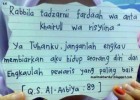 "Rabbila tadzarni fardaah wa anta
Khairul wa risyina"
Ya Tuhanku, janganlah engkau
membiarkan aku hidup seorang diri dan
Engkaulah pewaris yang paling baik
[Q.S. Al-Anbiya : 89]